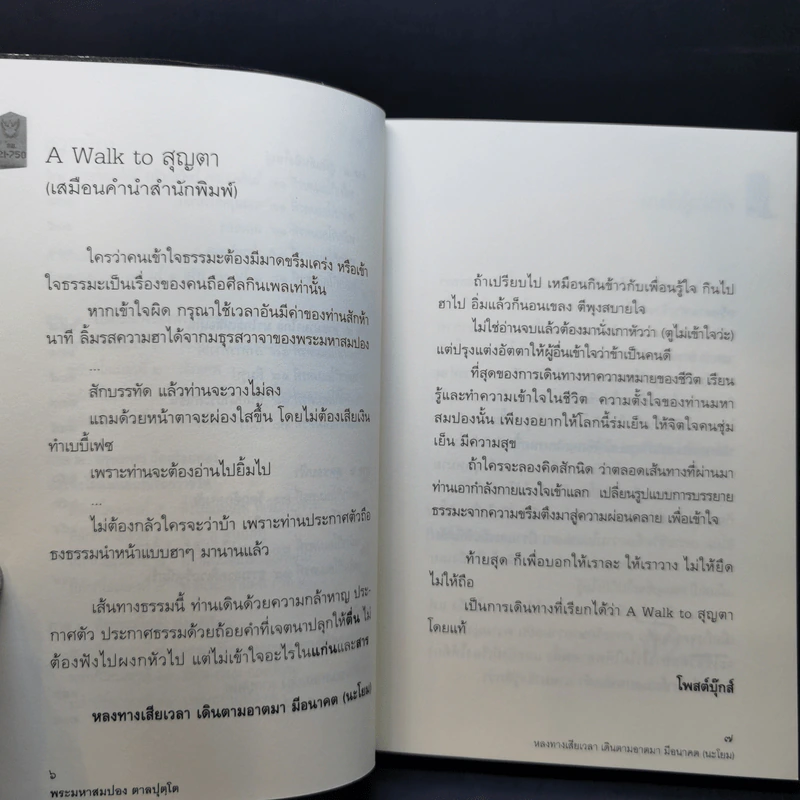 A Walk to สุญตา
(เสมือนคำนำสำนักพิมพ์)
ใครว่าคนเข้าใจธรรมะต้องมีมาดขรึมเคร่ง หรือเข้า
ใจธรรมะเป็นเรื่องของคนถือศีลกินเพลเท่านั้น
หากเข้าใจผิด กรุณาใช้เวลาอันมีค่าของท่านสักห้า
นาที ลิ้มรสความฮาได้จากมธุรสวาจาของพระมหาสมปอง
...
สักบรรทัด แล้วท่านจะวางไม่ลง
แถมด้วยหน้าตาจะผ่องใสขึ้น โดยไม่ต้องเสียเงิน
ทำเบบี้เฟซ
เพราะท่านจะต้องอ่านไปยิ้มไป
...
ไม่ต้องกลัวใครจะว่าบ้า เพราะท่านประกาศตัวถือ
ธงธรรมนำหน้าแบบฮาๆ มานานแล้ว
เส้นทางธรรมนี้ ท่านเดินด้วยความกล้าหาญ ประ-
กาศตัว ประกาศธรรมด้วยถ้อยคำที่เจตนาปลุกให้ตื่น ไม่
ต้องฟังไปผงกหัวไป แต่ไม่เข้าใจอะไรในแก่นและสาร
หลงทางเสียเวลา เดินตามอาตมา มีอนาคต (นะโยม)
๖
พระมหาสมปอง ตาลปุตฺโต
ถ้าเปรียบไป เหมือนกินข้าวกับเพื่อนรู้ใจ กินไป
ฮาไป อิ่มแล้วก็นอนเขลง ตีพุงสบายใจ
ไม่ใช่อ่านจบแล้วต้องมานั่งเกาหัวว่า (ตูไม่เข้าใจว่ะ)
แต่ปรุงแต่งอัตตาให้ผู้อื่นเข้าใจว่าข้าเป็นคนดี
ที่สุดของการเดินทางหาความหมายของชีวิต เรียน
รู้และทำความเข้าใจในชีวิต ความตั้งใจของท่านมหา
สมปองนั้น เพียงอยากให้โลกนี้ร่มเย็น ให้จิตใจคนชุ่ม
เย็น มีความสุข
ถ้าใครจะลองคิดสักนิด ว่าตลอดเส้นทางที่ผ่านมา
ท่านเอากำลังกายแรงใจเข้าแลก เปลี่ยนรูปแบบการบรรยาย
ธรรมะจากความขรึมตึงมาสู่ความผ่อนคลาย เพื่อเข้าใจ
ท้ายสุด ก็เพื่อบอกให้เราละ ให้เราวาง ไม่ให้ยึด
ไม่ให้ถือ
เป็นการเดินทางที่เรียกได้ว่า A Walk to สุญตา
โดยแท้
โพสต์บุ๊กส์
๗
หลงทางเสียเวลา เดินตามอาตมา มีอนาคต (นะโยม)